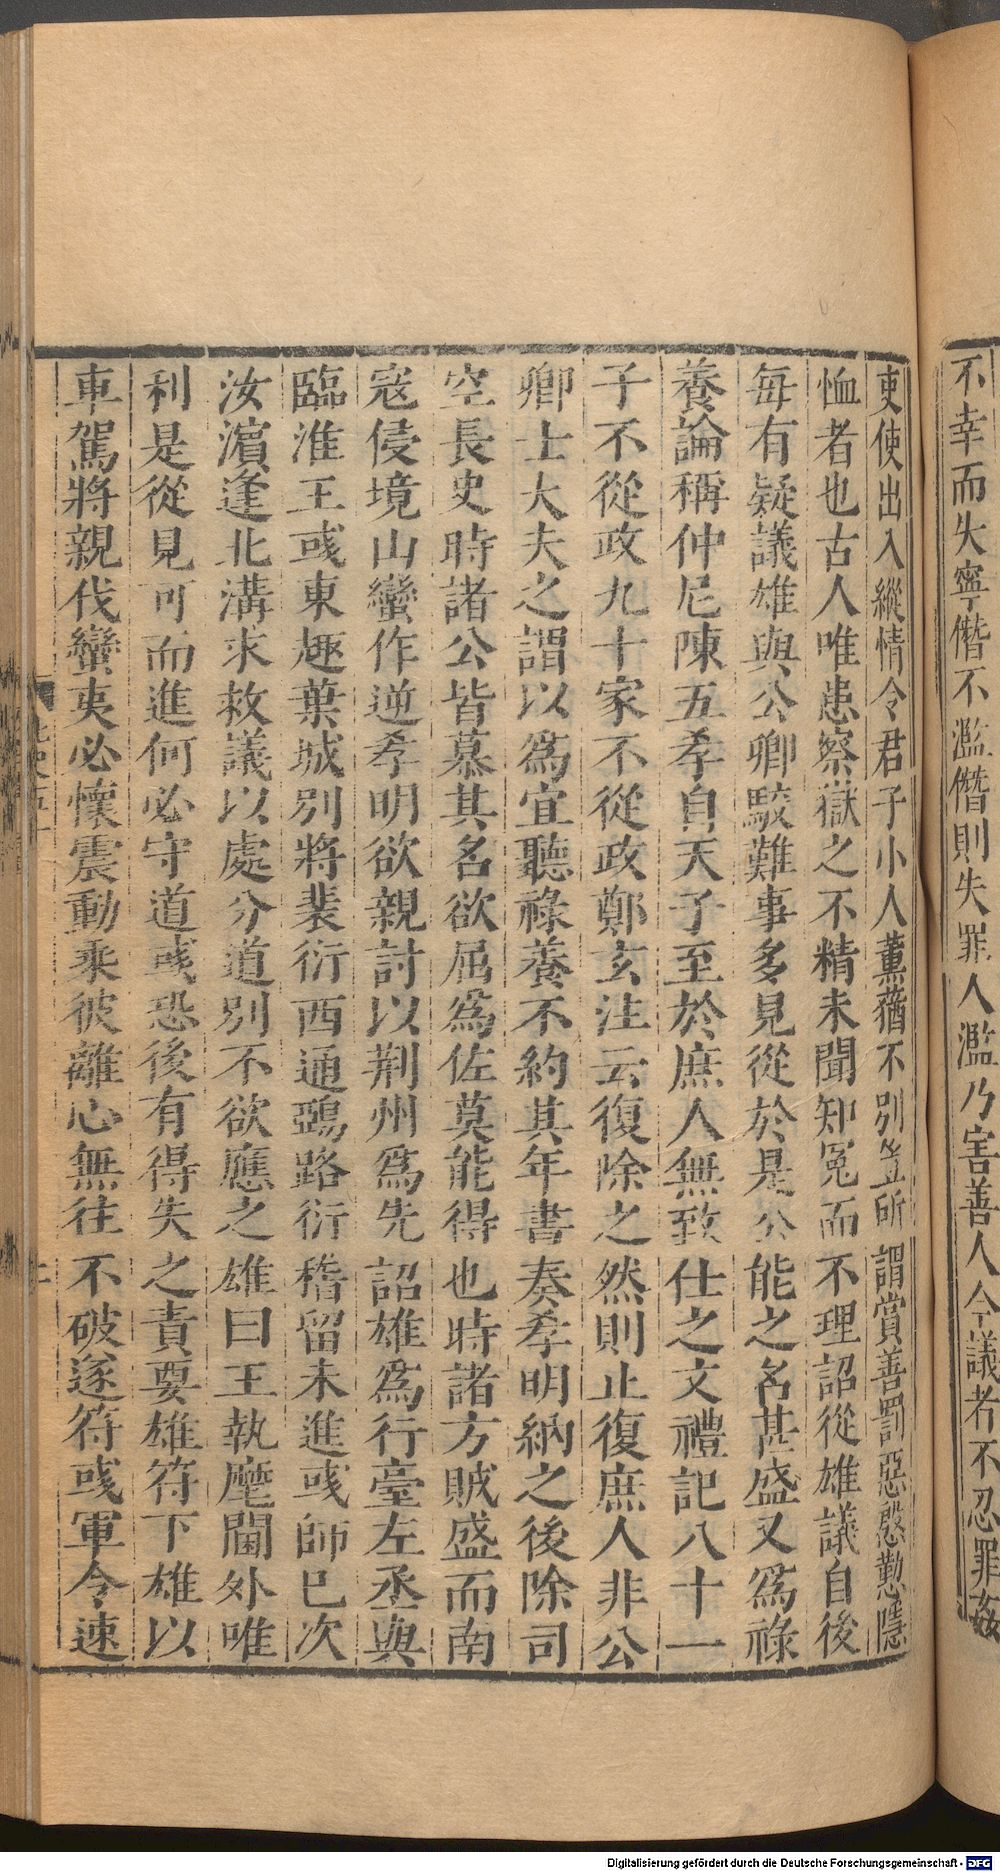 不幸而失寧僭不濫僭則失罪人濫乃害善人今議者不忍罪姦
吏使出入縱情令君子小人薰蕕不別豈所謂賞善罰惡慇懃隱
恤者也古人唯患察獄之不精未聞知冤而不理詔從雄議自後
每有疑議雄與公卿駮難事多見從於是公能之名甚盛又爲祿
養論稱仲尼陳五孝自天子至於庶人無致仕之文禮記八十一
子不從政九十家不從政鄭玄注云復除之然則止復庶人非公
卿士大夫之謂以爲宜聽祿養不約其年書奏孝明納之後除司
空長史時諸公皆慕其名欲屈爲佐莫能得也時諸方賊盛而南
寇侵境山蠻作逆孝明欲親討以荆州爲先詔雄爲行臺左丞與
臨淮王彧東趣葉城別將裴衍西通鵶路衍稽留未進彧師已次
汝濵逢北溝求救議以處分道別不欲應之雄曰王執麾閫外唯
利是從見可而進何必守道彧恐後有得失之責要雄符下雄以
車駕將親伐蠻夷必懷震動乘彼離心無往不破遂符彧軍令速
Digitalisierung gefördert durch die Deutsche Forschungsgemeinschaft - DFG